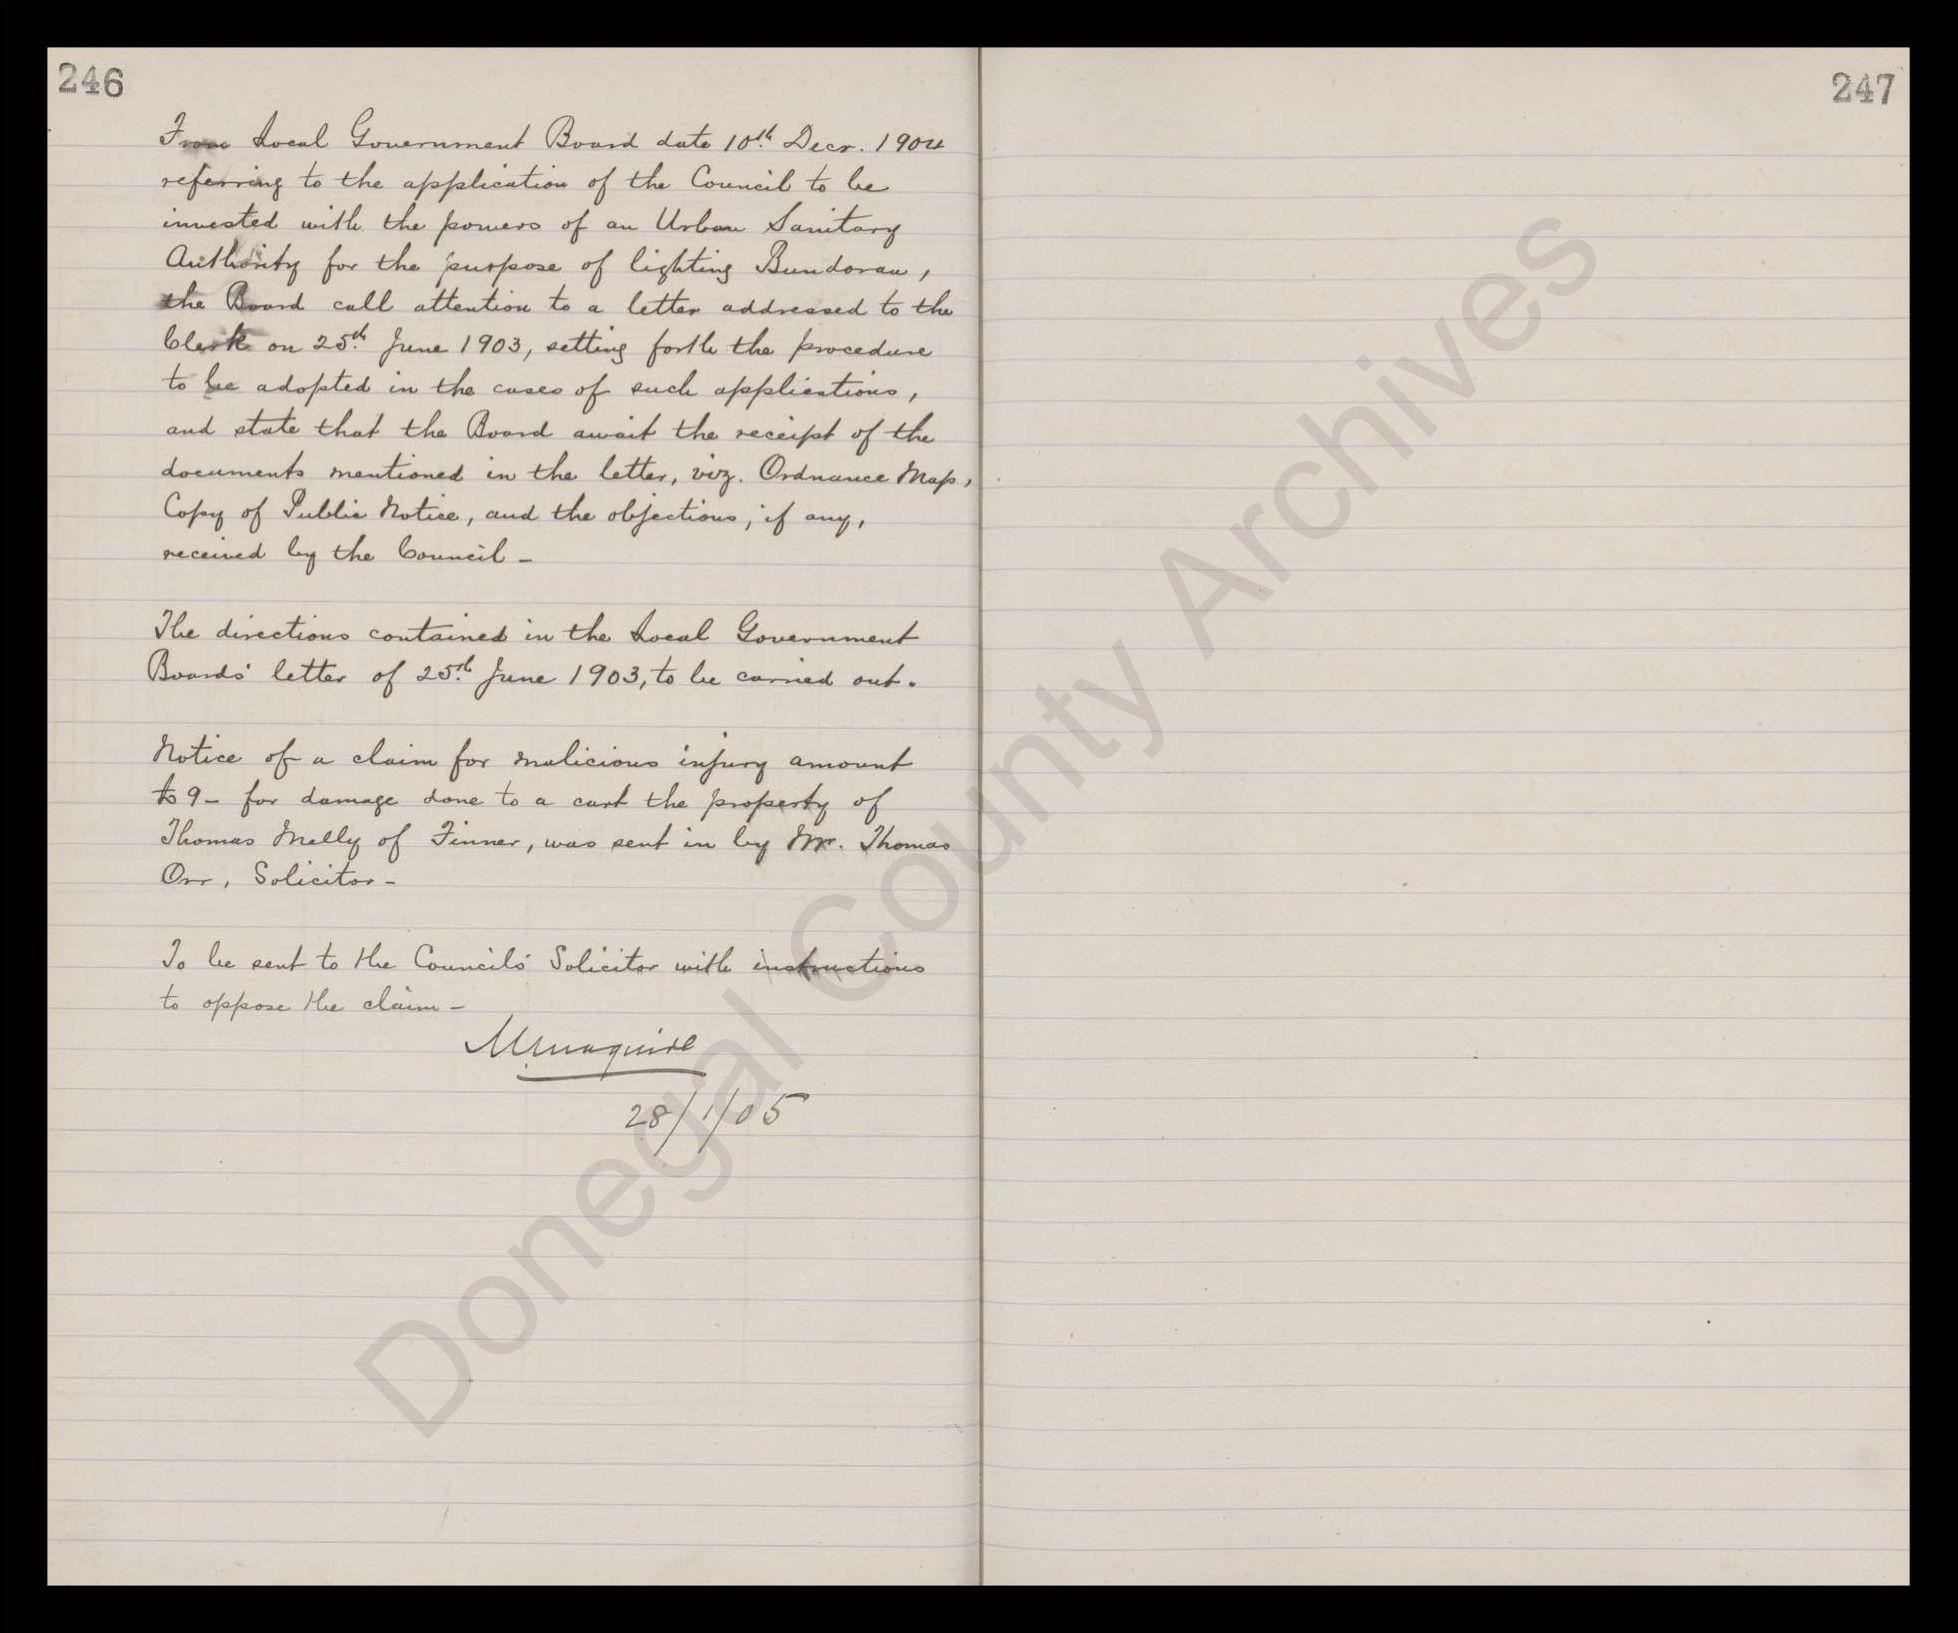 246
From Local Government Board date 10th Decr. 1904
referring to the application of the Council to be
invested with the powers of an Urban Sanitary
Authority for the purpose of lighting Bundoran,
the Board call attention to a letter addressed to the
Clerk on 25th June 1903, setting forth the procedure
to be adopted in the cases of such applications,
and state that the Board await the receipt of the
documents mentioned in the letter, viz. Ordnance Map,
Copy of Public Notice, and the objections, if any,
received by the Council -
The directions contained in the Local Government
Boards' letter of 25th June 1903, to be carried out.
Notice of a claim for malicious injury amount
to 9 - for damage done to a cart the property of
Thomas Melly of Finner, was sent in by Mr. Thomas
Orr, Solicitor -
To be sent to the Councils' Solicitor with instructions
to oppose the claim -
Maguire
28/1/05
247
Donegal County Archives